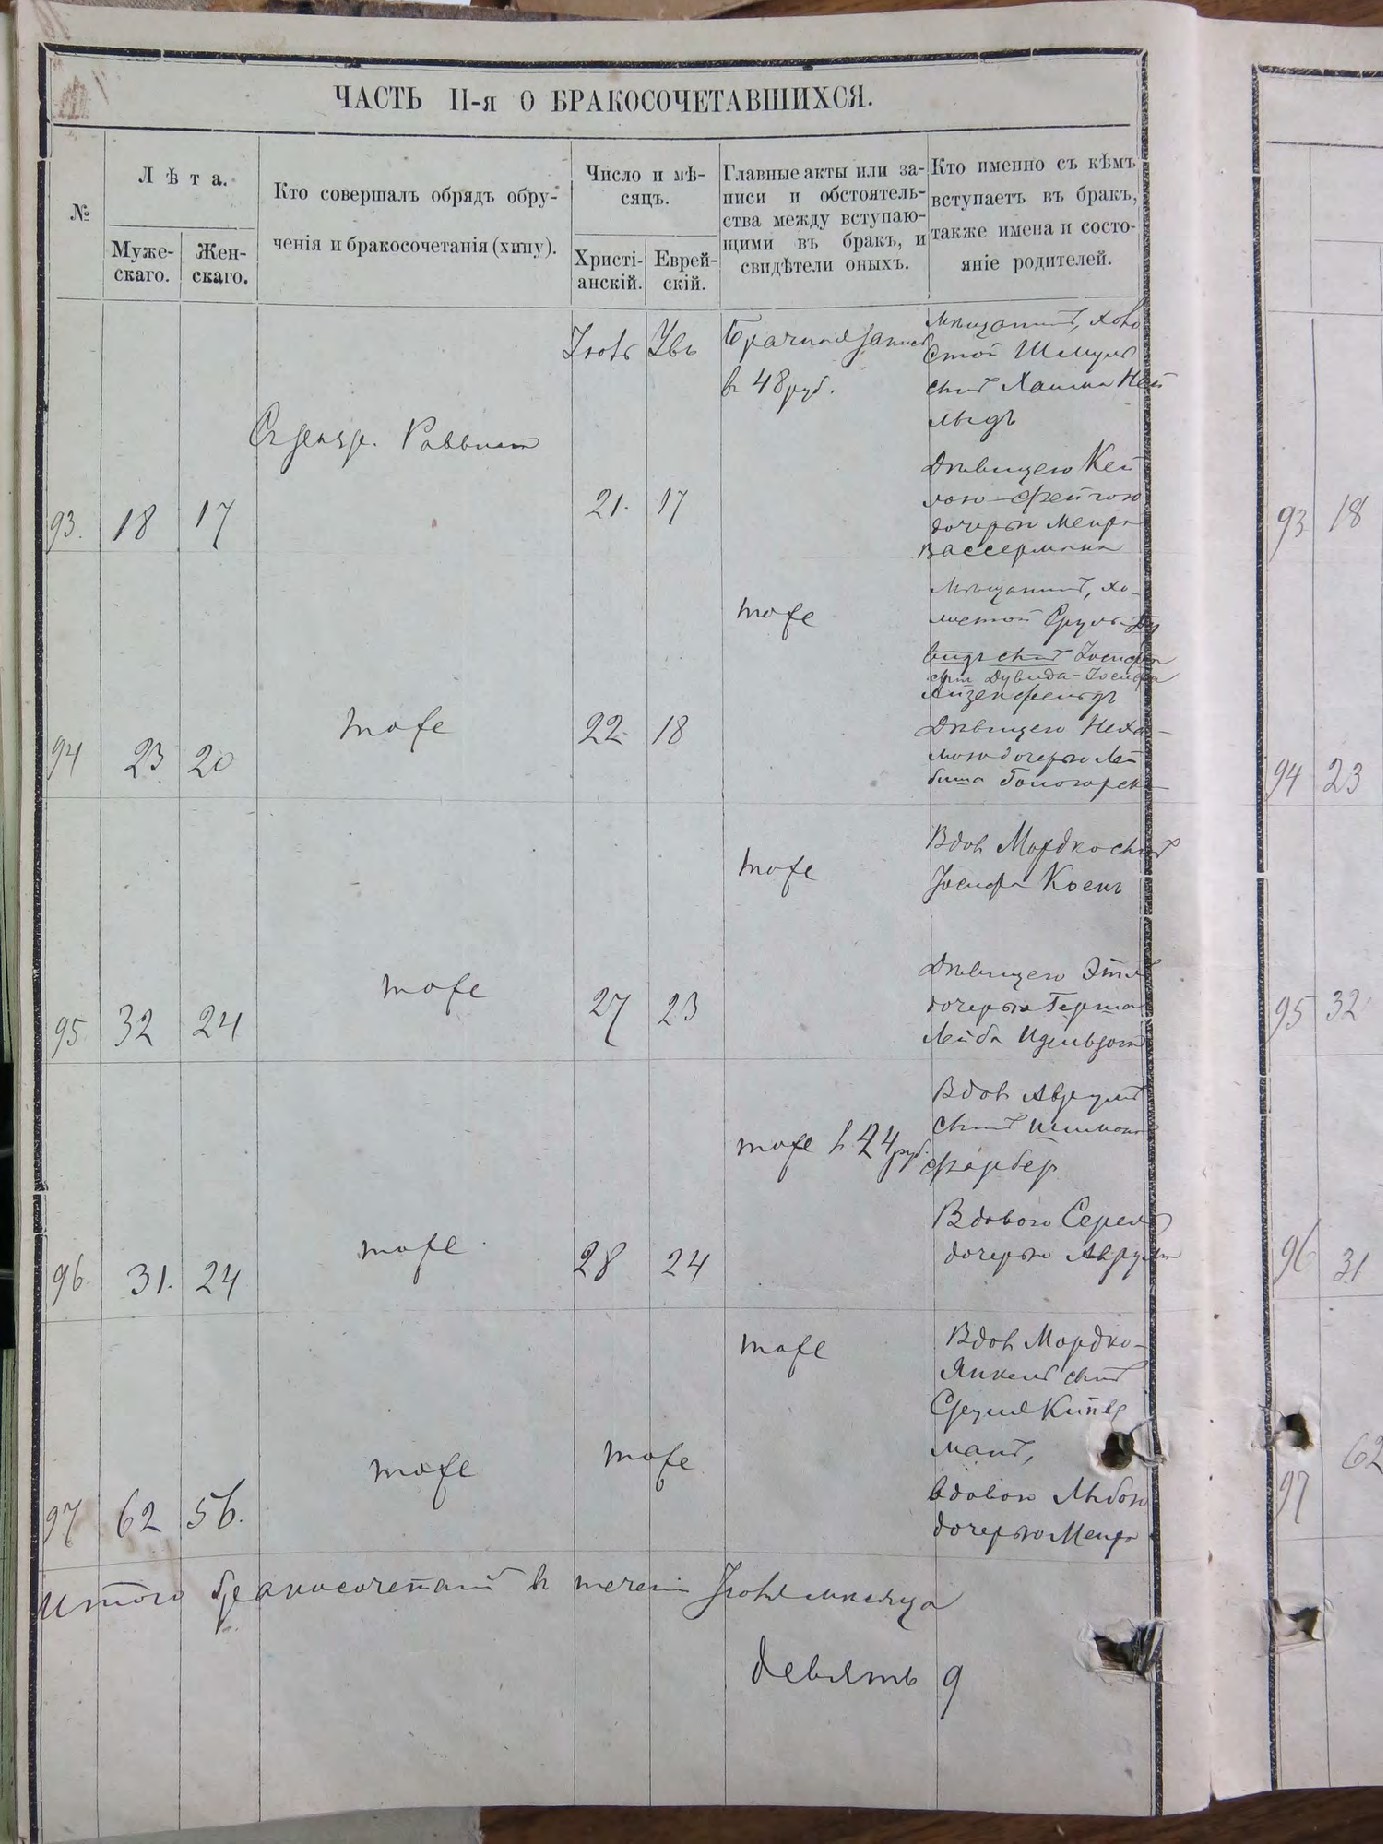 ЧАСТЬ II-я О БРАКОСОЧЕТАВШИХСЯ.
№
Лѣта.
Муже-
скаго.
Жен-
скаго.
Кто совершалъ обрядъ обру-
ченія и бракосочетанія (хипу).
Число и мѣ-
сяцъ.
Христі-
анскій.
Еврей-
скій.
Главные акты или за-
писи и обстоятель-
ства между вступаю-
щими въ бракъ, и
свидѣтели оныхъ.
Кто именно съ кѣмъ
вступаетъ въ бракъ,
также имена и состо-
яніе родителей.
93. 18 17
Раввинъ
21. 17
Брачная запись
в 48 руб.
Мѣщанинъ, холо
стой Шмуль
сынъ Хаима Ней
Дѣвицею Кей
лою-Фейгою
дочерью Меира
Вассермана
94 23 20
тоже
22 18
тоже
Мѣщанинъ, хо-
лостой Сруль-Ду
видъ сынъ Іосифа
сын Дувида-Іосифа
Айзенфельдъ
Дѣвицею Неха-
мою дочерью Лей
95. 32 24
тоже
27 23
тоже
Вдов Мордко сынъ
Іосифа Коенъ
Дѣвицею
дочерью Герша
Лейба
96. 31. 24
тоже
28 24
тоже в 24 руб.
Вдов Аврумъ
сынъ Шимона
Фарбер
Вдовою
дочерью Аврума
97 62 56.
тоже
тоже
тоже
Вдов Мордко-
Янкель сынъ
Сруля
манъ,
вдовою
дочерью Меира
Итого бракосочетаній в течени Іюля мѣсяца
девять 9
93 18
94 23
95 32
96 31
97 62